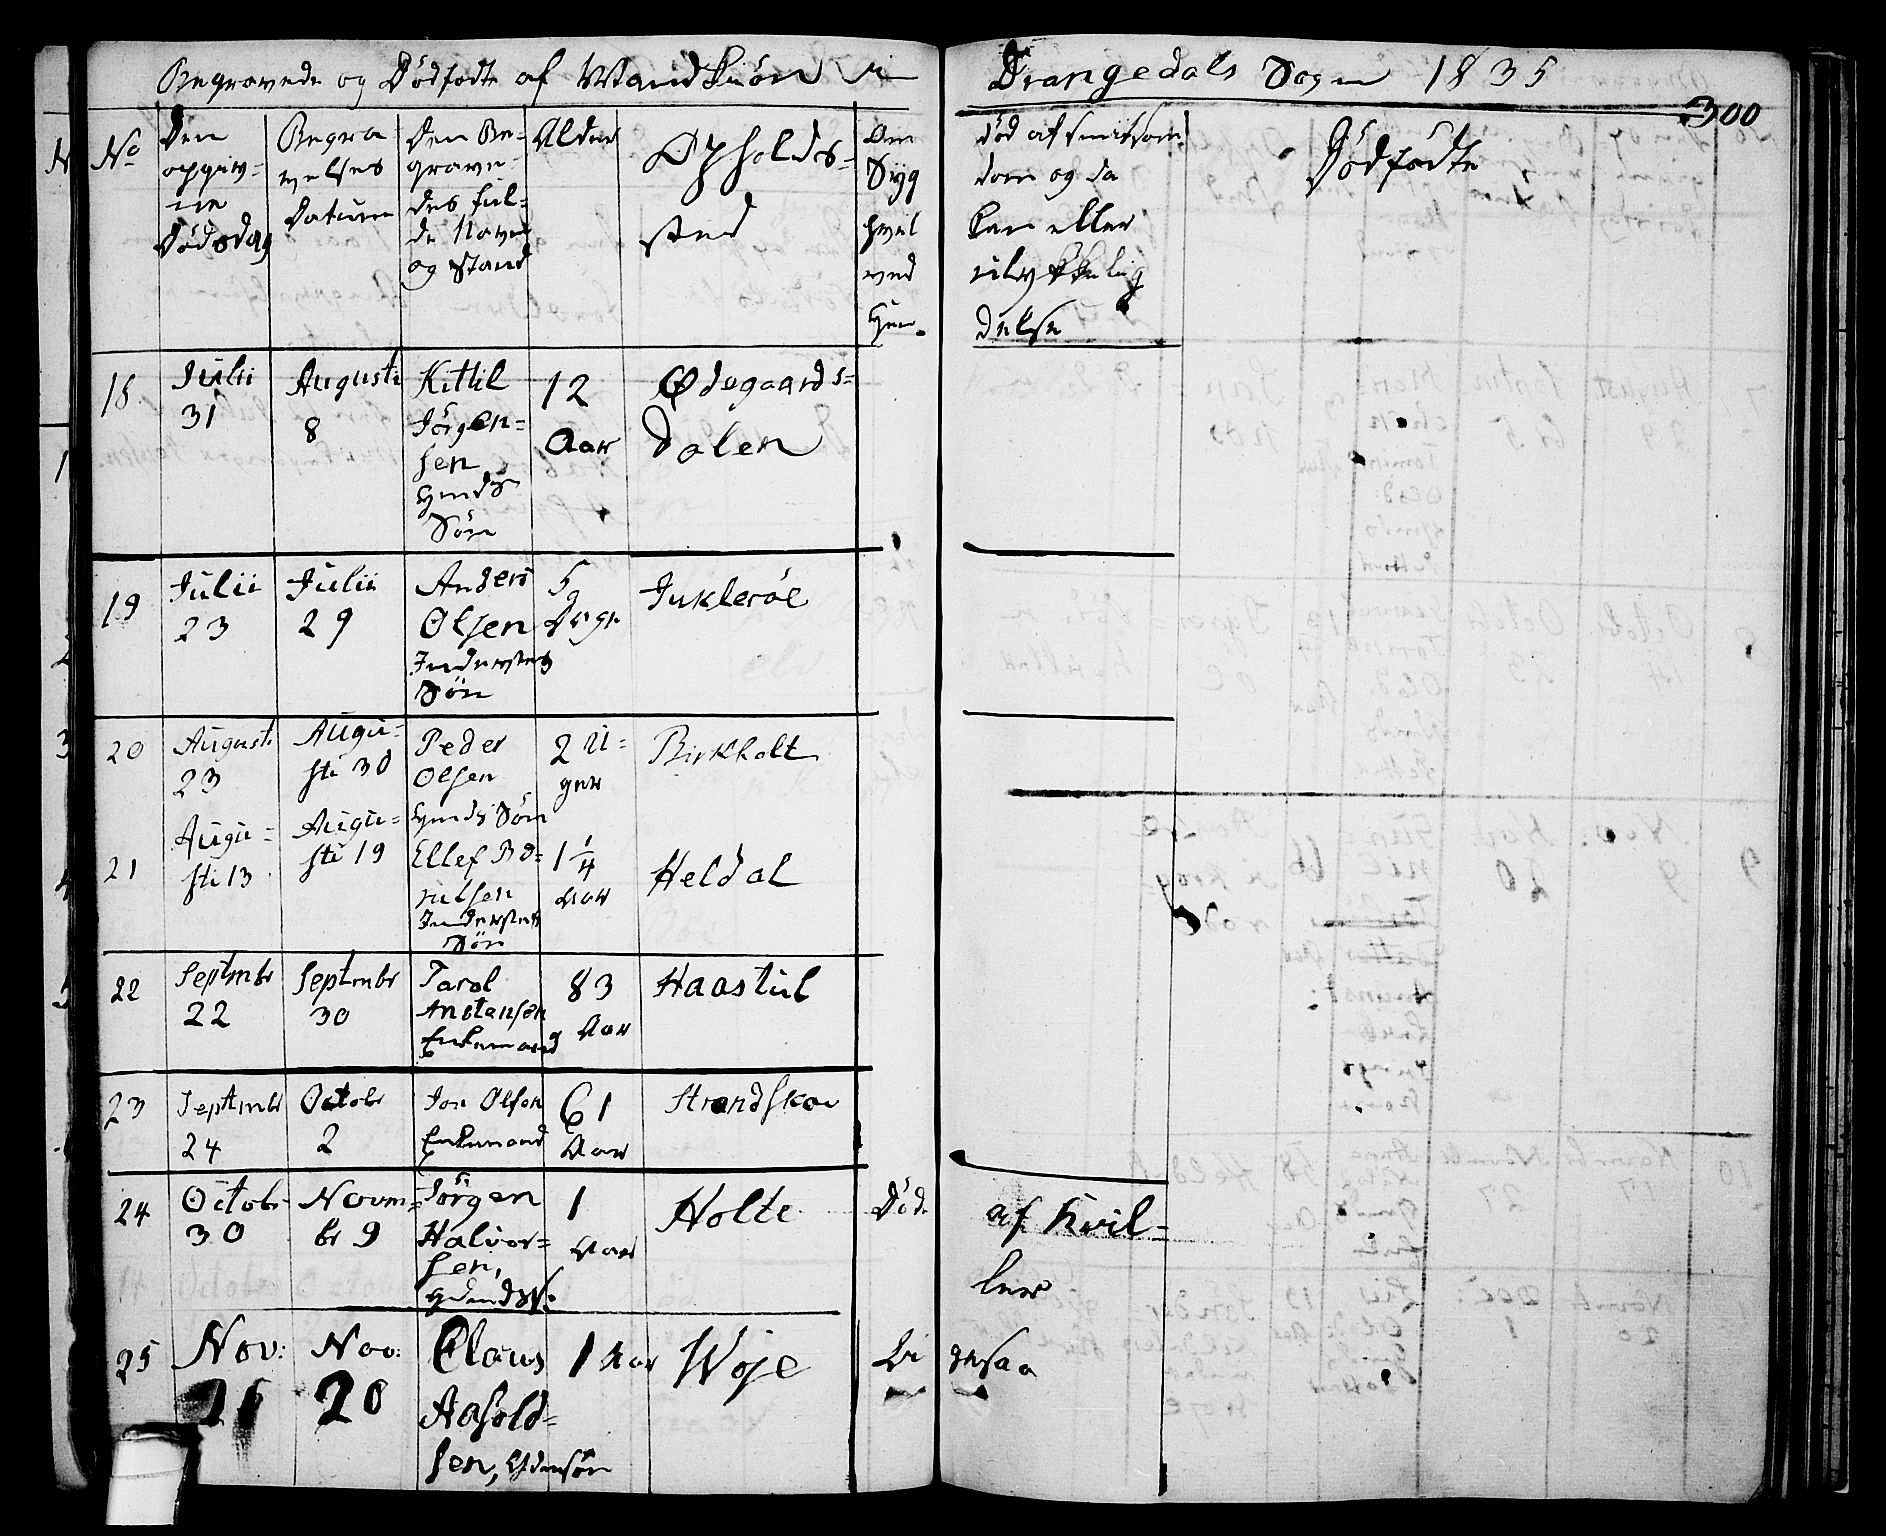 Begravede og Dödfödte af Mandkiön i Drangedals Sogn 1835
300
No
Den opgiv=
ne
Dödsdag
Begra
velses
Datum
Den Be=
grave=
des ful=
de Navn
og Stand
Alder
Opholds=
sted
Om död af smitsom
Syg dom og da
hvil ken eller
ved ulykkelig
Hen= delse
Dödfödte
18
Julii
31
Augusti
8
Kittil
Jörgen=
sen
Gmds
Sön
12
Aar
Ödegaards=
Dalen
19
Julii
23
Julii
29
Anders
Olsen
Indersters
Sön
5
Dage
Jukleröe
20
Augusti
23
Augu=
sti 30
Peder
Olsen
Gmds Sön
2 U=
ger
Birkholt
21
Augu=
sti 13
Augu=
sti 19
Ellef Bo=
Indersters
Sön
1 1/4
Aar
Heldal
22
Septmbr
22
Septmbr
30
Tarol
Anstensen
Enkemand
83
Aar
Haastul
23
Septmbr
24
Octobr
2
Jon Olsen
Enkemand
61
Aar
Strandskov
24
Octobr
30
Novm=
br 9
Jörgen
Halvor=
sen,
1
Aar
Holte
Död af Kril=
ler
25
Nov:
Nov:
20
Claus
Aasold=
sen,
1 Aar
Woje
Li gesaa